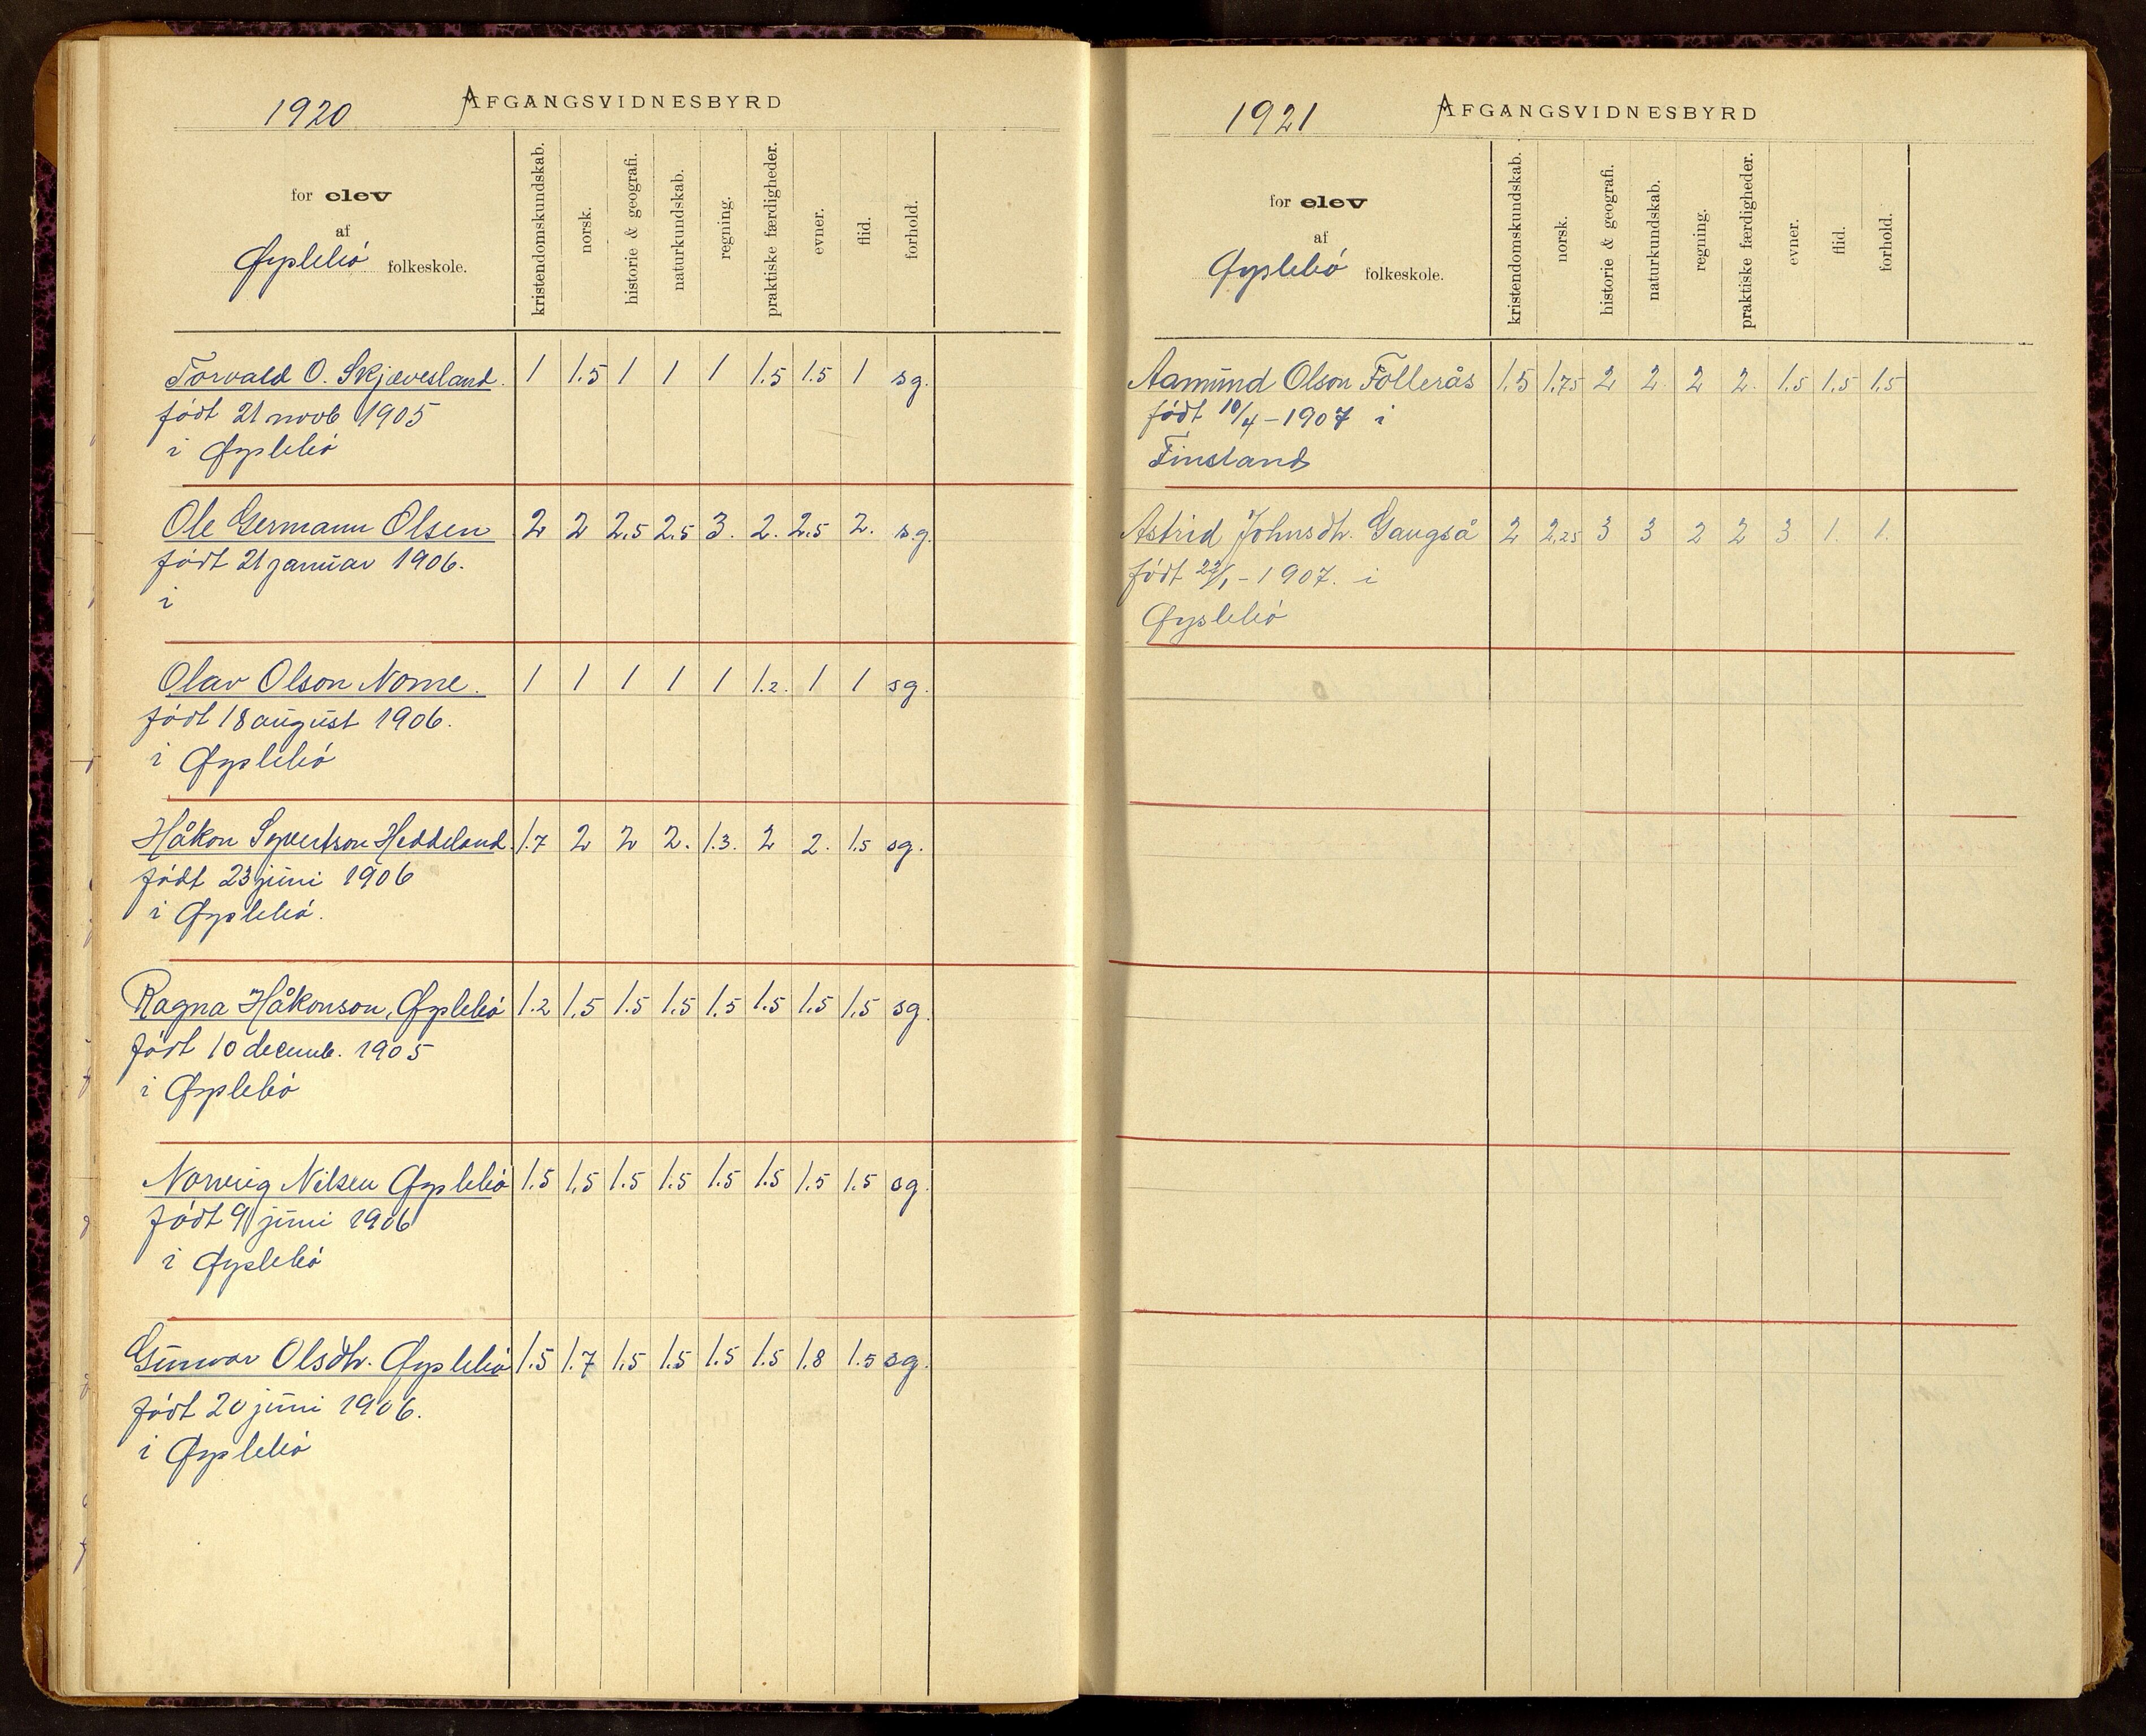 1920 AFGANGSVIDNESBYRD
for elev
af
Øyslebö folkeskole.
kristendomskundskab.
norsk.
historie & geografi.
naturkundskab.
regning.
praktiske færdigheder.
evner.
flid.
forhold.
Torvald O. Skjævesland. 1 1.5 1 1 1 1.5 1.5 1 sg.
födt 21 novb 1905
i Øyslebö
Ole Germann Olsen 2 2 2.5 2.5 3. 2. 2.5 2. sg.
födt 21 januar 1906.
i
Olav Olson Nome. 1 1 1 1 1 1.2. 1 1 sg.
födt 18 august 1906.
i Øyslebö
Håkon Syvertson Heddeland. 1.7 2 2 2. 1.3. 2 2. 1.5 sg.
födt 23 juni 1906
i Øyslebö.
Ragna Håkonson, Øyslebö 1.2 1.5 1.5 1.5 1.5 1.5 1.5 1.5 sg.
födt 10 decemb. 1905
i Øyslebö
Norveig Nilsen Øyslebö 1.5 1.5 1.5 1.5 1.5 1.5 1.5 1.5 sg.
födt 9 juni 1906
i Øyslebö
Gunvor Olsdtr. Øyslebö 1.5 1.7 1.5 1.5 1.5 1.5 1.8 1.5 sg.
födt 20 juni 1906.
i Øyslebö
1921 AFGANGSVIDNESBYRD
for elev
af
Øyslebö folkeskole.
kristendomskundskab.
norsk.
historie & geografi.
naturkundskab.
regning.
praktiske færdigheder.
evner.
flid.
forhold.
Aamund Olson Follerås 1.5 1.75 2 2. 2 2. 1.5 1.5 1.5
födt 10/4 - 1907 i
Finsland
Astrid Johnsdtr. Gangså 2 2.25 3 3 2 2 3 1. 1.
födt /1 - 1907. i
Øyslebö